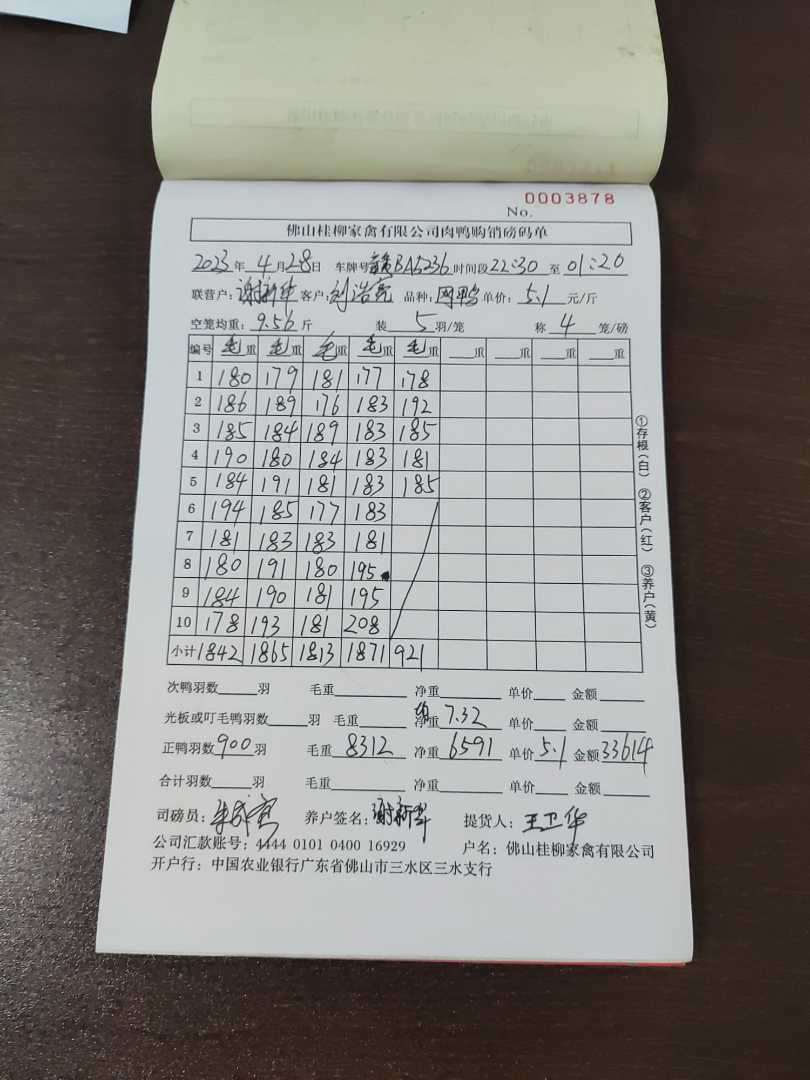 0003878
No.
佛山桂柳家禽有限公司肉鸭购销磅码单
2023年 4月28日 车牌号赣BA5236时间段22:30 至 01:20
联营户：谢新华 客户：刘浩亮 品种：网鸭 单价：5.1 元/斤
空笼均重：9.56 斤 装 5 羽/笼 称 4 笼/磅
编号 毛重 毛重 毛重 毛重 毛重 重 重 重 重
1 180 179 181 177 178
2 186 189 176 183 192
3 185 184 189 183 185
4 190 180 184 183 181
5 184 191 181 183 185
6 194 185 177 183
7 181 183 183 181
8 180 191 180 195
9 184 190 181 195
10 178 193 181 208
小计 1842 1865 1813 1871 921
①存根(白) ②客户(红) ③养户(黄)
次鸭羽数 羽 毛重 净重 单价 金额
光板或叮毛鸭羽数 羽 毛重 均重 7.32 单价 金额
正鸭羽数900羽 毛重 8312 净重 6591 单价5.1 金额33614
合计羽数 羽 毛重 净重 单价 金额
司磅员： 养户签名：谢新华 提货人：王卫华
公司汇款账号：4444 0101 0400 16929 户名：佛山桂柳家禽有限公司
开户行：中国农业银行广东省佛山市三水区三水支行